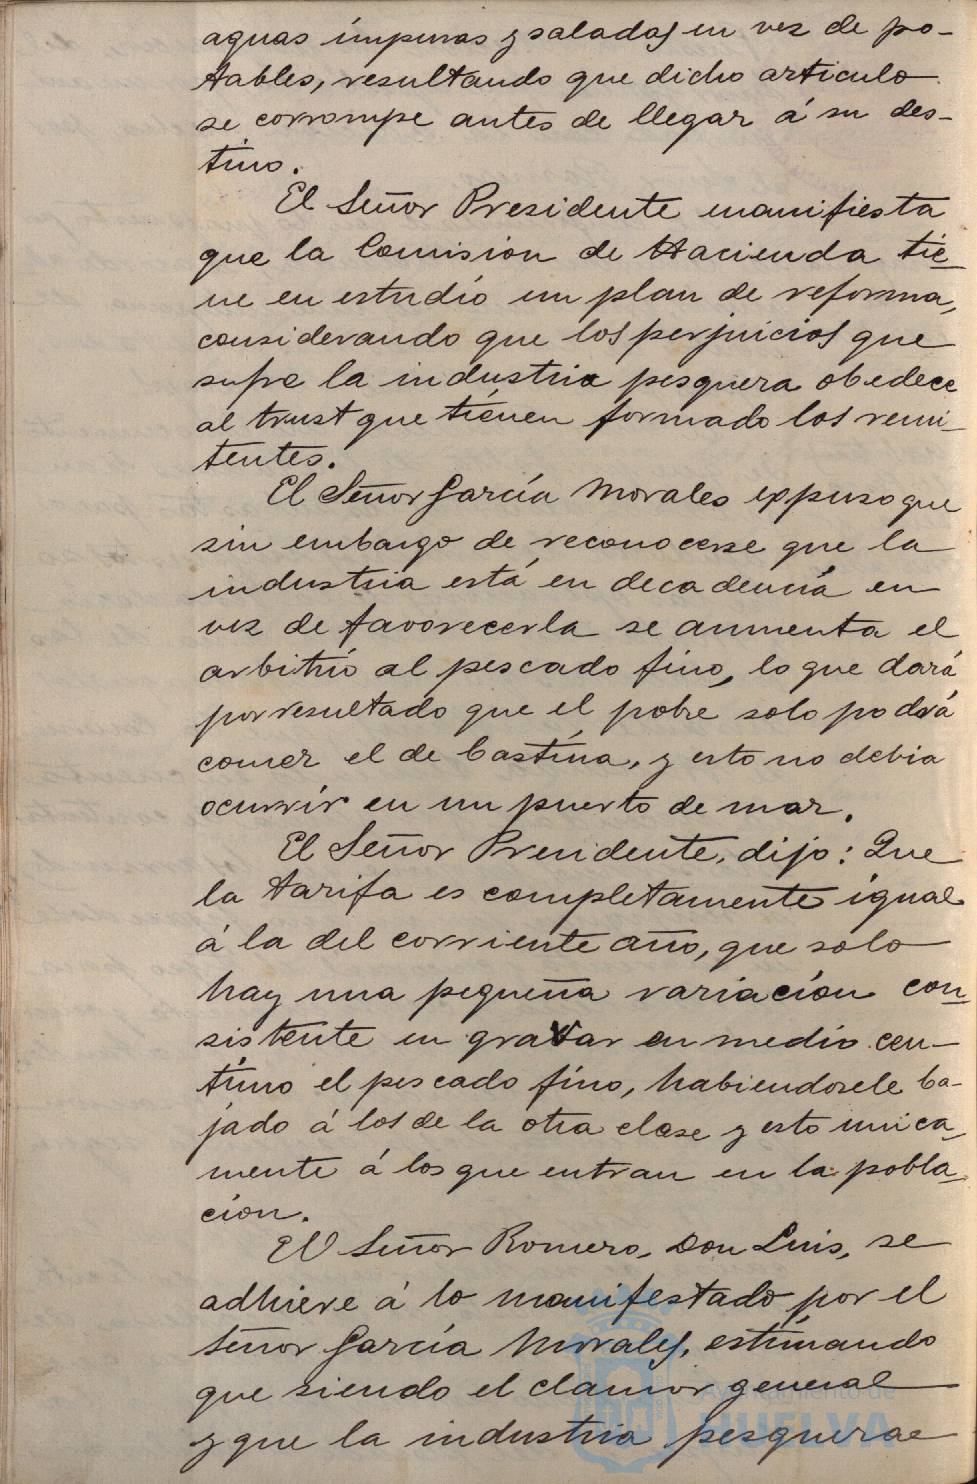 aguas impuras y saladas en vez de po-
tables, resultando que dicho articulo
se corrompe antes de llegar á su des-
tino.
El Señor Presidente manifiesta
que la Comision de Hacienda tie-
ne en estudio un plan de reforma,
considerando que los perjuicios que
sufre la industria pesquera obedece
al trust que tienen formado los remi-
tentes.
El Señor García Morales expuso que
sin embargo de reconocerse que la
industria está en decadencia en
vez de favorecerla se aumenta el
arbitrio al pescado fino, lo que dará
por resultado que el pobre solo podrá
comer el de bastina, y esto no debia
ocurrir en un puerto de mar.
El Señor Presidente, dijo: Que
la tarifa es completamente igual
á la del corriente año, que solo
hay una pequeña variacion con-
sistente en gravar en medio cen-
timo el pescado fino, habiendosele ba-
jado á los de la otra clase y esto unica-
mente á los que entran en la pobla-
cion.
El Señor Romero, Don Luis, se
adhiere á lo manifestado por el
Señor García Morales, estimando
que siendo el clamor general
y que la industria pesquera e
Ayuntamiento de
HUELVA